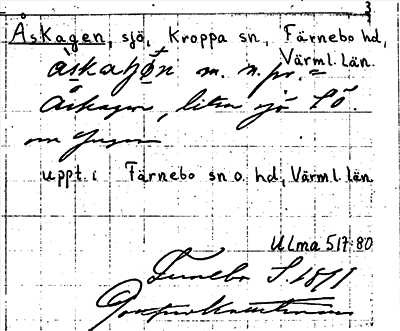 3
Åskagen, sjö, Kroppa sn., Färnebo hd,
Värml. län.
m. n. pr. =
Åskagen, liten sjö SÖ.
om
uppt. i Färnebo sn o. hd, Värml. län.
Ulma 517:80
Färnebo S. 1811